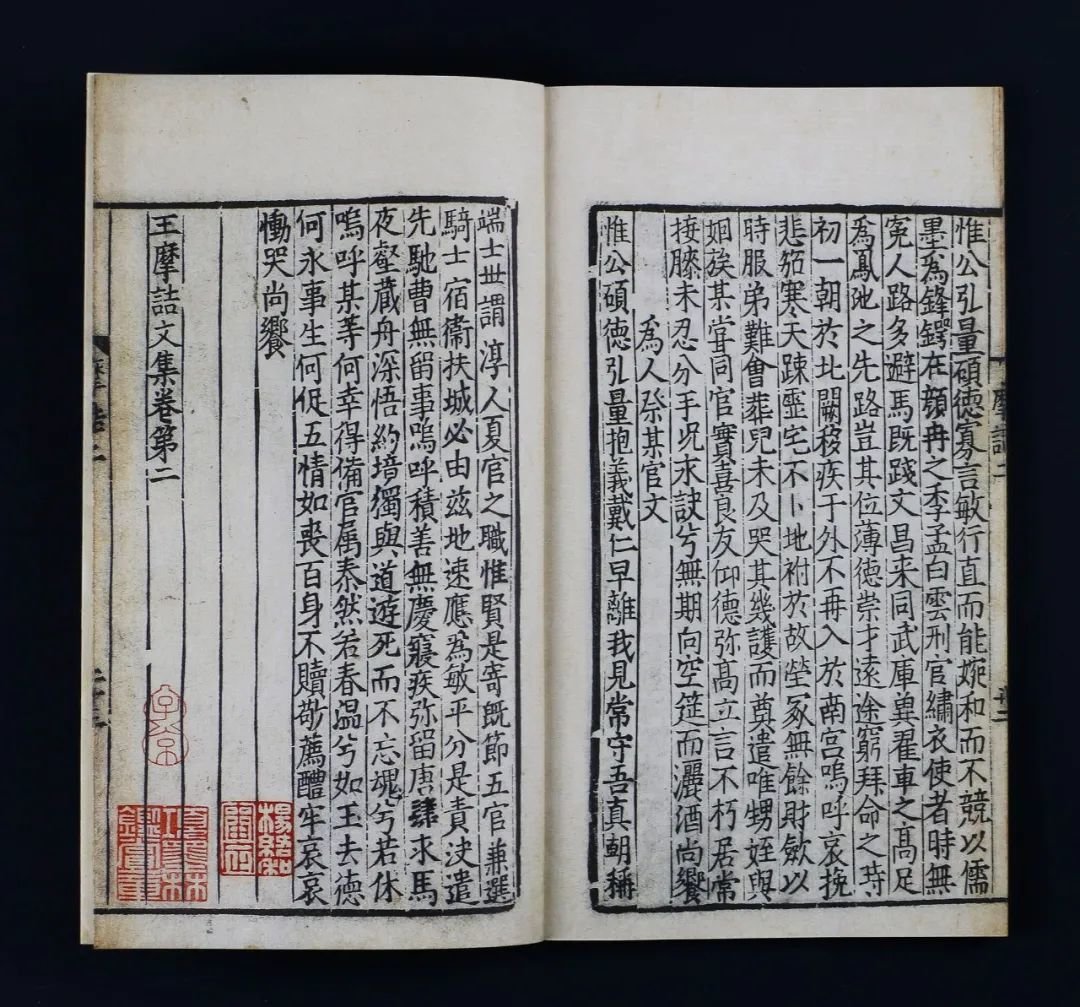 惟公弘量碩德寡言敏行直而能婉和而不競以儒
墨為鋒鍔在顔冉之季孟白雲刑官繡衣使者時無
冤人路多避馬既踐文昌来同武庫異翟車之髙足
為鳳池之先路豈其位薄徳崇才遠途窮拜命之時
初一朝於北闕移疾于外不再入於南宫嗚呼哀挽
悲笳寒天踈霊宅不卜地祔於故塋家無餘財歛以
時服弟難會葬兒未及哭其幾護而奠遣唯甥姪與
姻族某甞同官實喜良友仰德弥髙立言不朽居常
接膝未忍分手况求訣兮無期向空筵而灑酒尚饗
為人祭某官文
惟公碩德弘量抱義戴仁早離我見常守吾真朝稱
端士世謂淳人夏官之職惟賢是寄既節五官兼選
騎士宿衞扶城必由兹地速應為敏平分是責決遣
先馳曹無留事嗚呼積善無慶寢疾弥留唐肆求馬
夜壑蔵舟深悟約境獨與道遊死而不忘魂兮若休
嗚呼某等何幸得備官属泰然若春温兮如玉去德
何永事生何促五情如喪百身不贖敬薦醴牢哀哀
慟哭尚饗
王摩詰文集卷第二
摩詰二